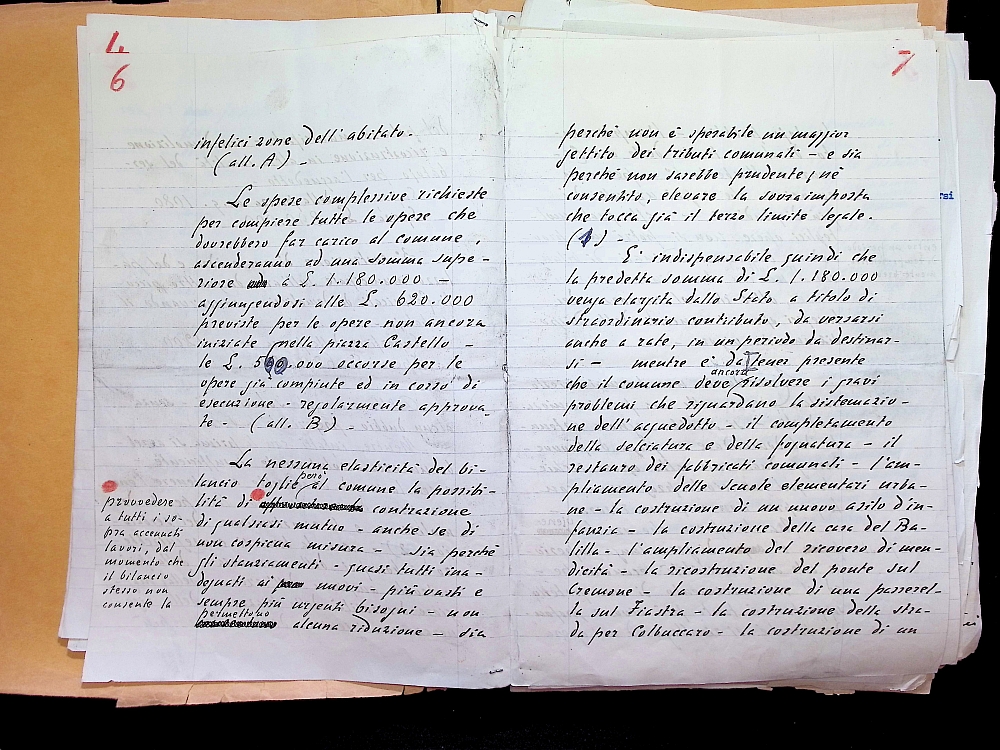 4
6
infelici zone dell'abitato.
(all. A) -
Le opere complessive richieste
per compiere tutte le opere che
dovrebbero far carico al comune,
ascenderanno ad una somma supe-
riore a £. 1.180.000 -
aggiungendosi alle £. 620.000
previste per le opere non ancora
iniziate nella piazza Castello -
le £. 560.000 occorse per le
opere già compiute ed in corso di
esecuzione - regolarmente approva-
te - (all. B) -
La nessuna elasticità del bi-
lancio toglie però al comune la possibi-
lità di contrazione
di qualsiasi mutuo - anche se di
non cospicua misura - sia perché
gli stanziamenti - quasi tutti ina-
deguati ai nuovi - più vasti e
sempre più urgenti bisogni - non
permettono alcuna riduzione - sia
provvedere
a tutti i so-
pra accennati
lavori, dal
momento che
il bilancio
stesso non
consente la
7
perché non è sperabile un maggior
gettito dei tributi comunali - e sia
perché non sarebbe prudente, né
consentito, elevare la sovraimposta
che tocca già il terzo limite legale.
( ) -
E' indispensabile quindi che
la predetta somma di £. 1.180.000
venga elargita dallo Stato a titolo di
straordinario contributo, da versarsi
anche a rate, in un periodo da destinar-
si - mentre è da tener presente
che il comune deve ancora risolvere i gravi
problemi che riguardano la sistemazio-
ne dell'acquedotto - il completamento
della selciatura e della fognatura - il
restauro dei fabbricati comunali - l'am-
pliamento delle scuole elementari urba-
ne - la costruzione di un nuovo asilo d'in-
fanzia - la costruzione della casa del Ba-
lilla - l'ampliamento del ricovero di men-
dicità - la ricostruzione del ponte sul
Cremone - la costruzione di una passerel-
la sul Fiastra - la costruzione della stra-
da per Colbuccaro - la costruzione di un
rsi